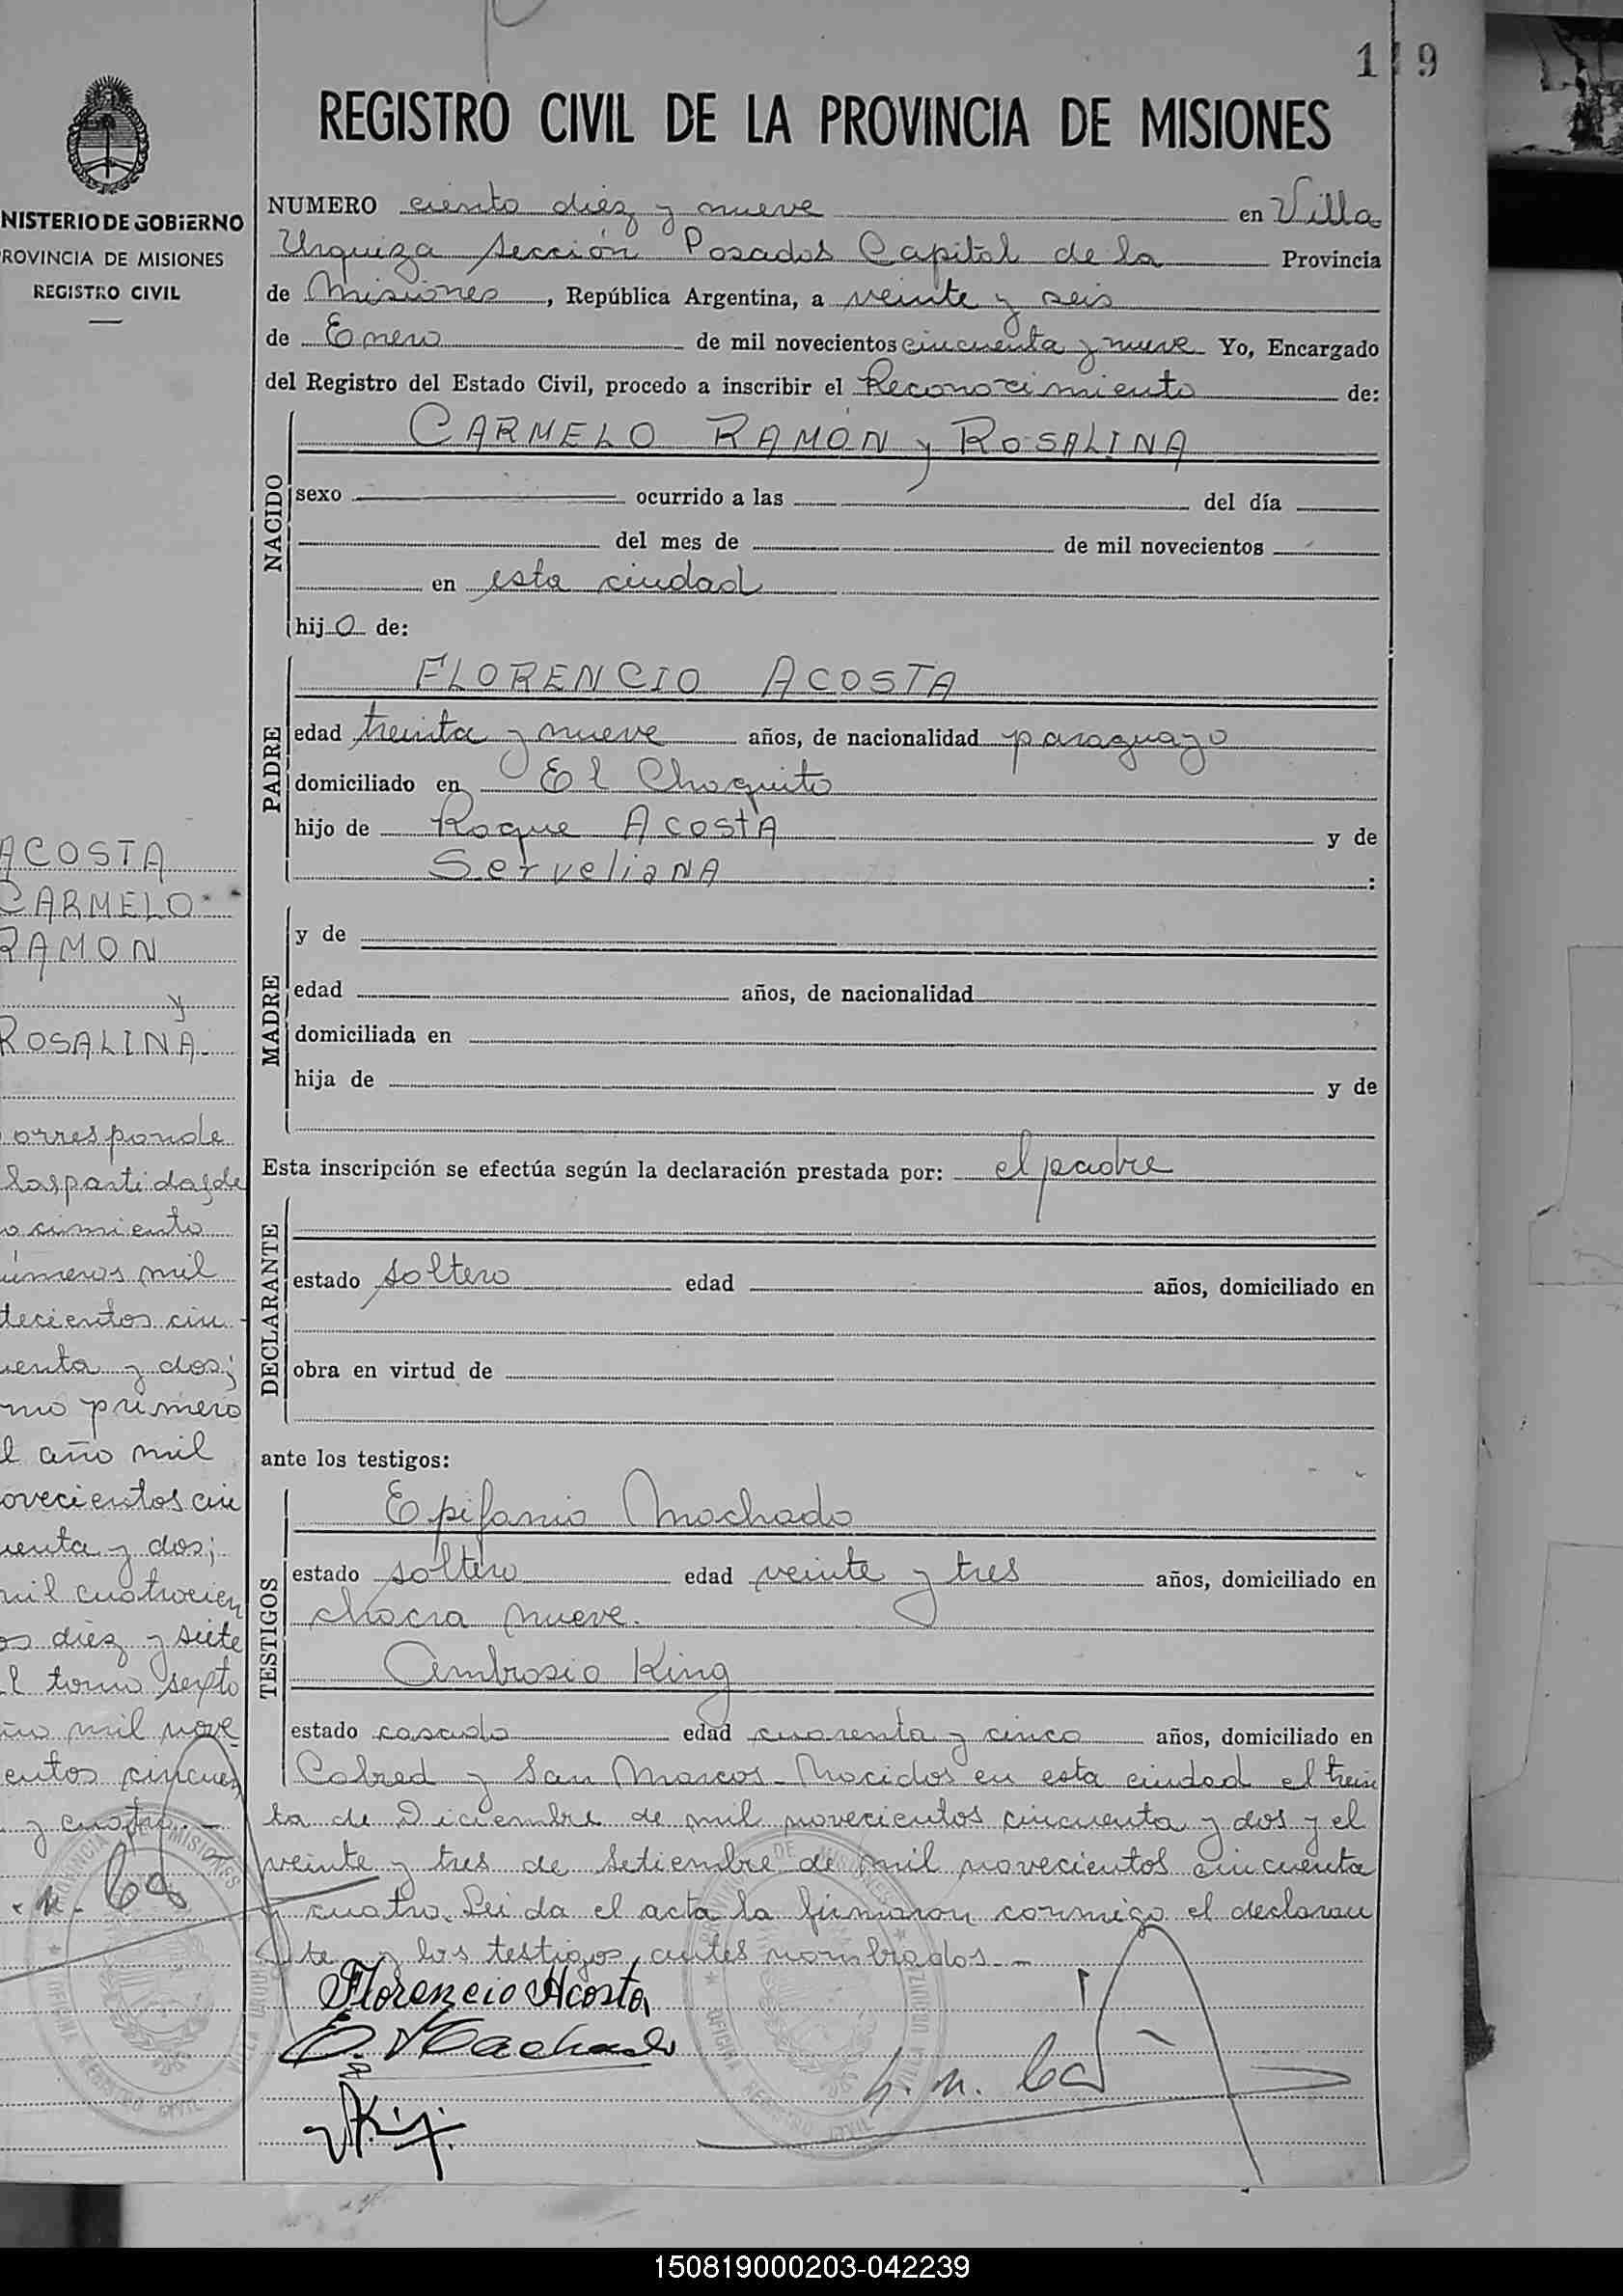 1 9
REGISTRO CIVIL DE LA PROVINCIA DE MISIONES
NISTERIO DE GOBIERNO
ROVINCIA DE MISIONES
REGISTRO CIVIL
NUMERO ciento diez y nueve en Villa
Urquiza sección Posadas Capital de la Provincia
de Misiones, República Argentina, a veinte y seis
de Enero de mil novecientos cincuenta y nueve Yo, Encargado
del Registro del Estado Civil, procedo a inscribir el Reconocimiento de:
NACIDO
CARMELO RAMÓN y ROSALINA
sexo ocurrido a las del día
del mes de de mil novecientos
en esta ciudad
hijo de:
PADRE
FLORENCIO ACOSTA
edad treinta y nueve años, de nacionalidad paraguayo
domiciliado en El Chaquito
hijo de Roque ACOSTA y de
ServeliaNA :
MADRE
y de
edad años, de nacionalidad
domiciliada en
hija de y de
Esta inscripción se efectúa según la declaración prestada por: el padre
DECLARANTE
estado soltero edad años, domiciliado en
obra en virtud de
ante los testigos:
TESTIGOS
Epifanio Machado
estado soltero edad veinte y tres años, domiciliado en
chacra nueve.
Ambrosio King
estado casado edad cuarenta y cinco años, domiciliado en
Cabred y San Marcos - Nacidos en esta ciudad el trein
ta de Diciembre de mil novecientos cincuenta y dos y el
veinte y tres de Setiembre de mil novecientos cincuenta
y cuatro. Leida el acta la firmaron conmigo el declaran
te y los testigos antes nombrados. -
Florencio Acosta
E. Machado
King
ACOSTA
CARMELO
RAMON
y
ROSALINA.
orresponde
las partidas de
o cimiento
úmeros mil
tecientos cin
uenta y dos;
mo primero
l año mil
ovecientos cin
uenta y dos;
mil cuatrocien
os diez y siete
l tomo sexto
ño mil nove
entos cincuen
y cuatro. -
150819000203-042239